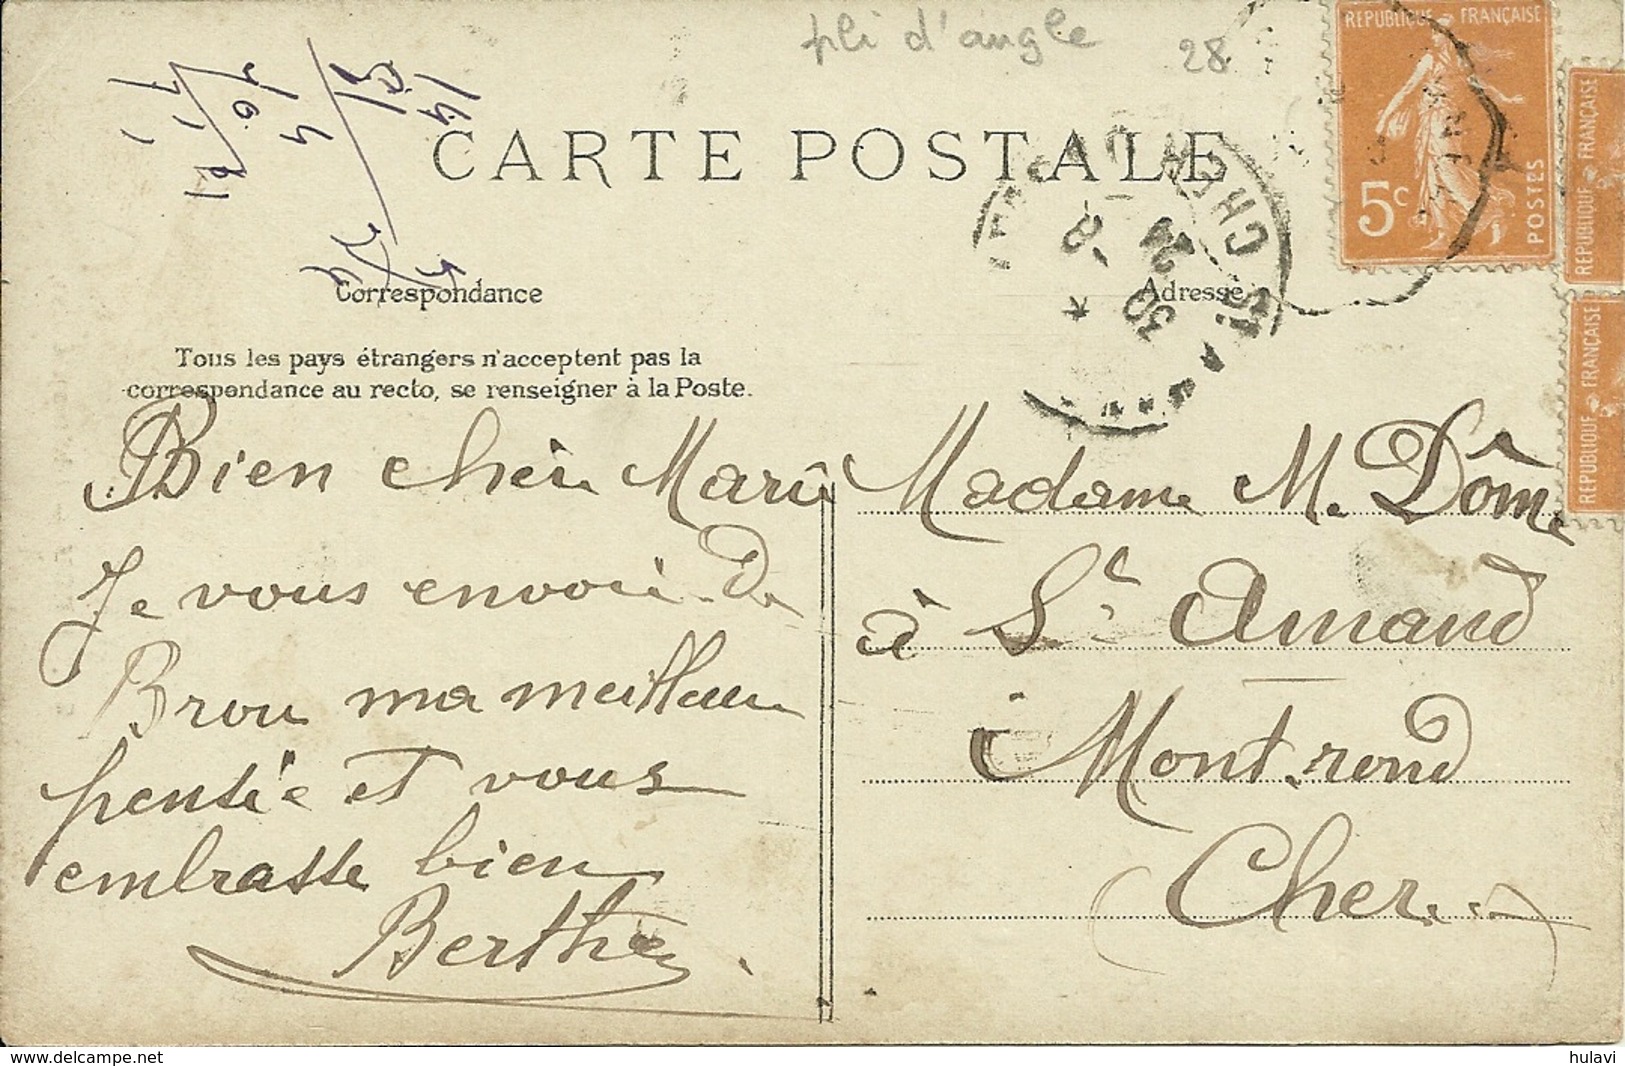 pli d'angle 28
REPUBLIQUE FRANÇAISE
5c
POSTES
REPUBLIQUE FRANÇAISE
REPUBLIQUE FRANÇAISE
CARTE POSTALE
Correspondance
Adresse
Tous les pays étrangers n'acceptent pas la
correspondance au recto, se renseigner à la Poste.
Bien chèr Marie
Je vous envoie de
Brou ma meilleur
pensée et vous
embrasse bien
Berthe
Madame M. Dôme
à St Amand
Montrond
Cher
www.delcampe.net
hulavi